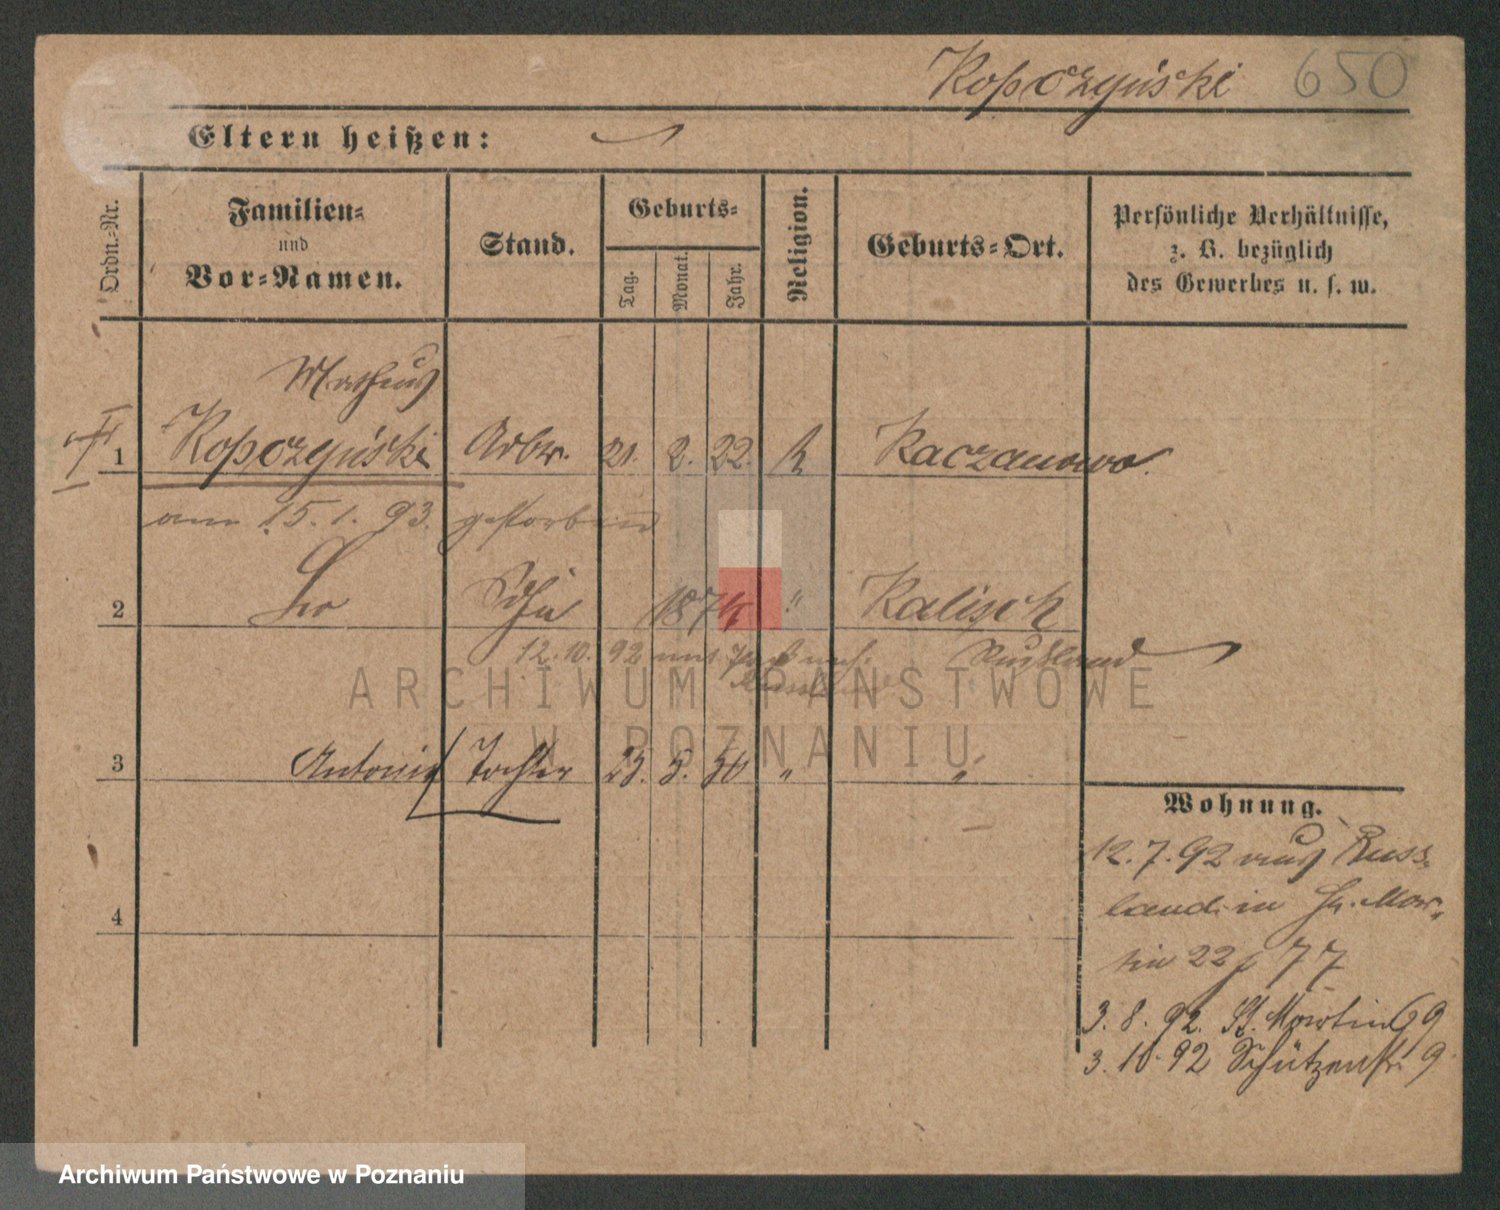 Kopczyński 650
Eltern heißen:
Ordn.-Nr.
Familien-
und
Vor-Namen.
Stand.
Geburts-
Tag.
Monat.
Jahr.
Religion.
Geburts-Ort.
Persönliche Verhältnisse,
z. B. bezüglich
des Gewerbes u. s. w.
Matheus
1 Kopczyński Arbtr. 21. 2. 22. k Kaczanowo.
am 15. 1. 93. gestorben
2 Leo Sohn 1874 " Kalisch
12. 10. 92 nach Russland
3 Antonie Tochter 25. 5. 50 " "
4
Wohnung.
12. 7. 92 aus Russ-
land in St. Mar-
tin 22 77
3. 8. 92. St. Martin 69
3. 10. 92 Schützenstr. 9
ARCHIWUM PAŃSTWOWE
W POZNANIU
Archiwum Państwowe w Poznaniu